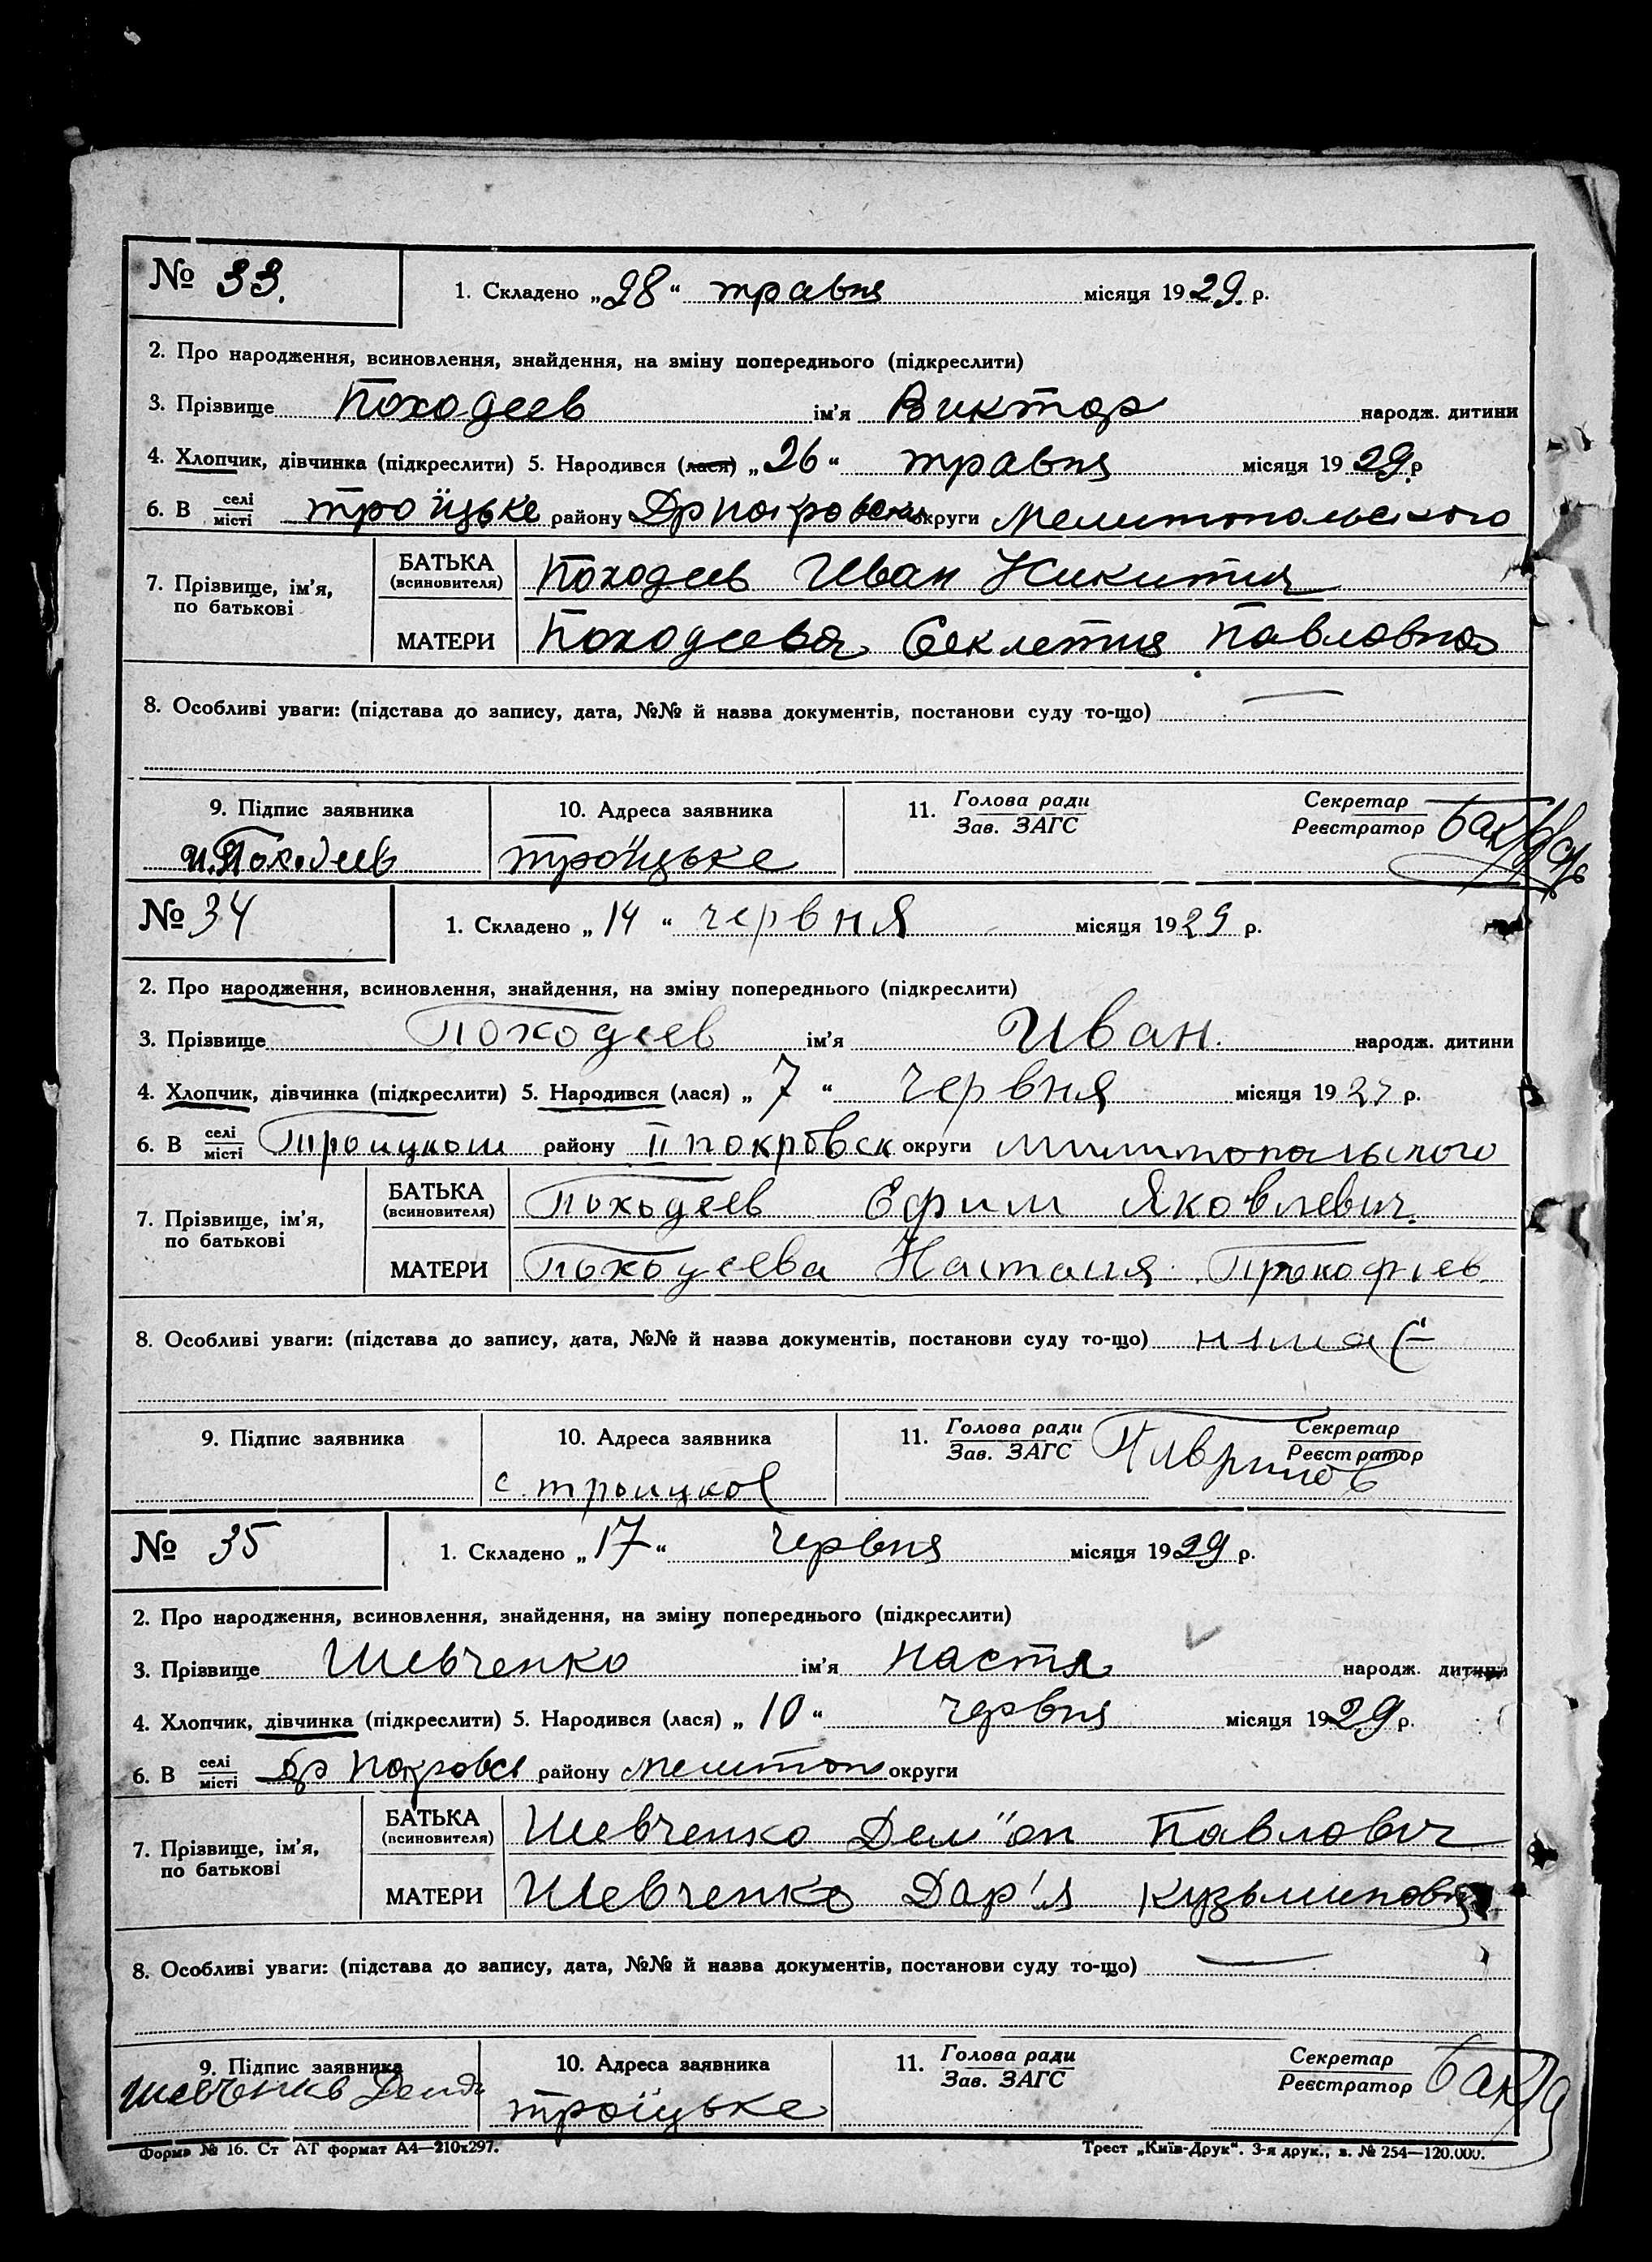 № 33.
1. Складено „28“ травня місяця 1929. р.
2. Про народження, всиновлення, знайдення, на зміну попереднього (підкреслити)
3. Прізвище Походеев ім'я Виктор народж. дитини
4. Хлопчик, дівчинка (підкреслити) 5. Народився (лася) „26“ травня місяця 1929. р
6. В селі місті троїцьке району Др покровськ округи Мелитопольського
7. Прізвище, ім'я, по батькові
БАТЬКА (всиновителя) Походеев Иван Никитич
МАТЕРИ Походеева Секлетия Павловна
8. Особливі уваги: (підстава до запису, дата, №№ й назва документів, постанови суду то-що) —
9. Підпис заявника 10. Адреса заявника 11. Голова ради Зав. ЗАГС Секретар Реєстратор
и. Походеев троїцьке
№ 34
1. Складено „14“ червня місяця 1929 р.
2. Про народження, всиновлення, знайдення, на зміну попереднього (підкреслити)
3. Прізвище Походеев ім'я Иван. народж. дитини
4. Хлопчик, дівчинка (підкреслити) 5. Народився (лася) „7“ червня місяця 19 р.
6. В селі місті Троицком району II покровск округи
7. Прізвище, ім'я, по батькові
БАТЬКА (всиновителя) Походеев Ефим Яковлевич.
МАТЕРИ Походеева Настасия Прокофиев.
8. Особливі уваги: (підстава до запису, дата, №№ й назва документів, постанови суду то-що) нима Є
9. Підпис заявника 10. Адреса заявника 11. Голова ради Зав. ЗАГС Секретар Реєстратор
с. троицкое
№ 35
1. Складено „17“ червня місяця 1929 р.
2. Про народження, всиновлення, знайдення, на зміну попереднього (підкреслити)
3. Прізвище Шевченко ім'я Настя народж. дитини
4. Хлопчик, дівчинка (підкреслити) 5. Народився (лася) „10“ червня місяця 1929 р.
6. В селі місті Др Покровсь району Мелитоп округи
7. Прізвище, ім'я, по батькові
БАТЬКА (всиновителя) Шевченко Дем"он Павлович
МАТЕРИ Шевченко Дар'я Кузьминовна
8. Особливі уваги: (підстава до запису, дата, №№ й назва документів, постанови суду то-що) —
9. Підпис заявника 10. Адреса заявника 11. Голова ради Зав. ЗАГС Секретар Реєстратор
Шевченко троїцьке
Форма № 16. Ст АТ формат А4—210х297. Трест „Київ-Друк“. 3-я друк., з. № 254—120.000.